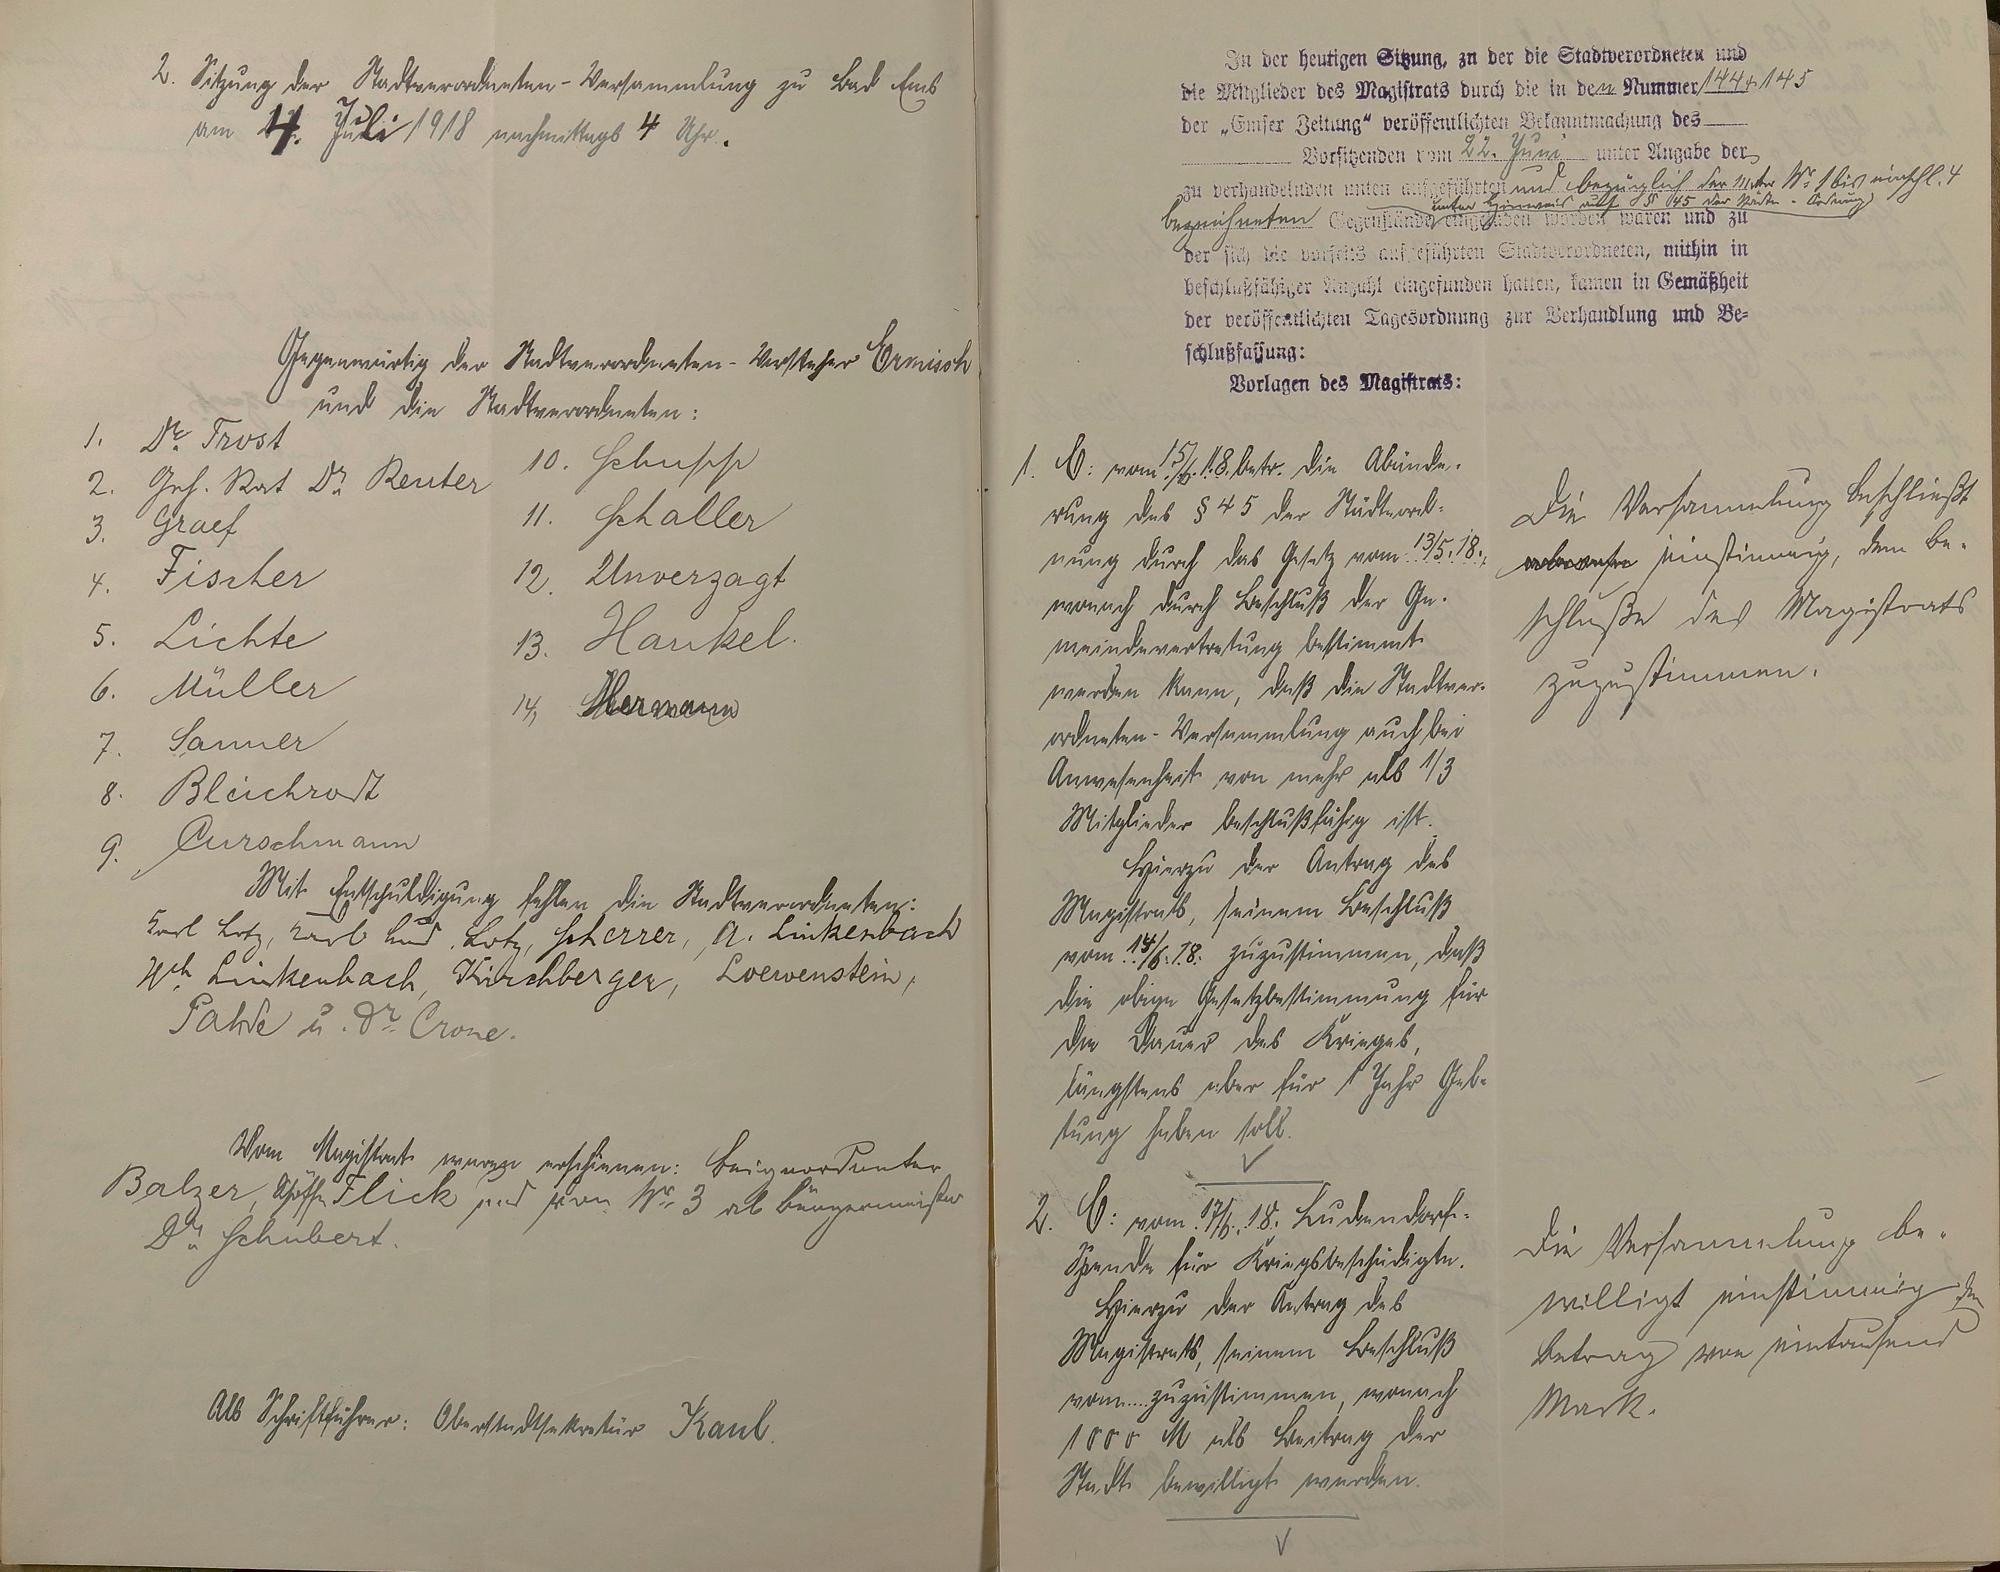 2. Sitzung der Stadtverordneten-Versammlung zu Bad Ems
am 4. Juli 1918 nachmittags 4 Uhr.
Gegenwärtig der Stadtverordneten-Vorsteher Ermisch
und die Stadtverordneten:
1. Dr. Trost
2. Geh. Rat Dr. Reuter
3. Graef
4. Fischer
5. Lichte
6. Müller
7. Sanner
8. Bleichrodt
9. Curschmann
10. Schupp
11. Schaller
12. Unverzagt
13. Hankel.
14. Hermann
Mit Entschuldigung fehlen die Stadtverordneten:
Karl Lotz, Karl Lud. Lotz, Scherrer, A. Linkenbach
Wh. Linkenbach, Kirchberger, Loewenstein,
Pahde u. Dr. Crone.
Vom Magistrat waren erschienen: Beigeordneter
Balzer, Schöffe Flick und von Nr. 3 ab Bürgermeister
Dr. Schubert.
Als Schriftführer: Oberstadtsekretär Kaul.
In der heutigen Sitzung, zu der die Stadtverordneten und
die Mitglieder des Magistrats durch die in den Nummer 144 + 145
der „Emser Zeitung" veröffentlichten Bekanntmachung des
Vorsitzenden vom 22. Juni unter Angabe der
zu verhandelnden unten aufgeführten und bezüglich der unter Nr. 1 bis einschl. 4
unter Hinweis auf § 45 der Städte-Ordnung
bezeichneten Gegenstände eingeladen worden waren und zu
der sich die vorseits aufgeführten Stadtverordneten, mithin in
beschlußfähiger Anzahl eingefunden hatten, kamen in Gemäßheit
der veröffentlichten Tagesordnung zur Verhandlung und Be-
schlußfassung:
Vorlagen des Magistrats:
1. C: vom 15/6.18. betr. die Abände-
rung des § 45 der Städteord-
nung durch das Gesetz vom 13/5.18.,
wonach durch Beschluß der Ge-
meindevertretung bestimmt
werden kann, daß die Stadtver-
ordneten-Versammlung auch bei
Anwesenheit von mehr als 1/3
Mitglieder beschlußfähig ist.
Hierzu der Antrag des
Magistrats, seinem Beschluß
vom 14/6.18. zuzustimmen, daß
die obige Gesetzbestimmung für
die Dauer des Krieges,
längstens aber für 1 Jahr Gel-
tung haben soll.
Die Versammlung beschließt
einstimmig, dem Be-
schluße des Magistrats
zuzustimmen.
2. C: vom 17/6.18. Ludendorff-
Spende für Kriegsbeschädigte.
Hierzu der Antrag des
Magistrats, seinem Beschluß
vom .... zuzustimmen, wonach
1000 M als Beitrag der
Stadt bewilligt werden.
Die Versammlung be-
willigt einstimmig den
Betrag von eintausend
Mark.